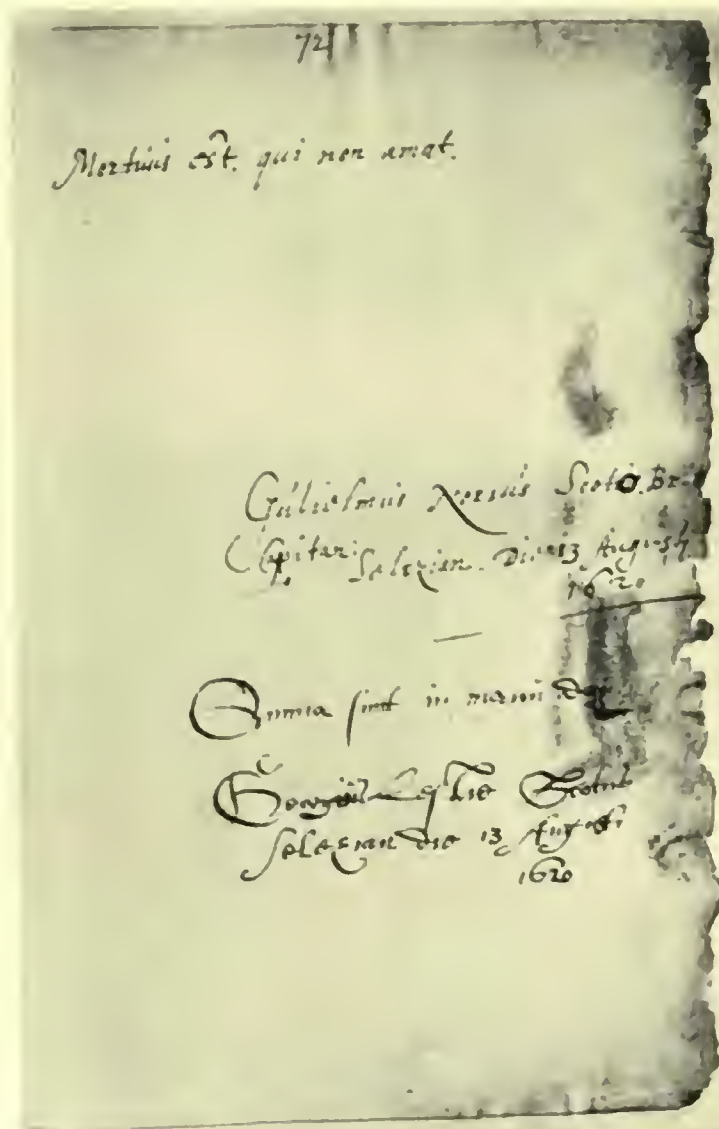 72
Mortuus est, qui non amat.
Gulielmus Scoto. Br
Capitan: Selezian. Die 13 Augusti
1620
Omnia sunt in manu dei
Georgius Scotus
Selezian die 13 Augusti
1620